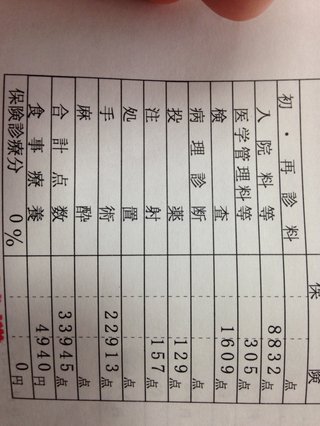 保 険
初・再診料 点
入院料等 8832点
医学管理料等 305点
検査 1609点
病理診断 点
投薬 129点
注射 157点
処置 点
手術 22913点
麻酔 点
合計点数 33945点
食事療養 4940円
保険診療分 0% 0円